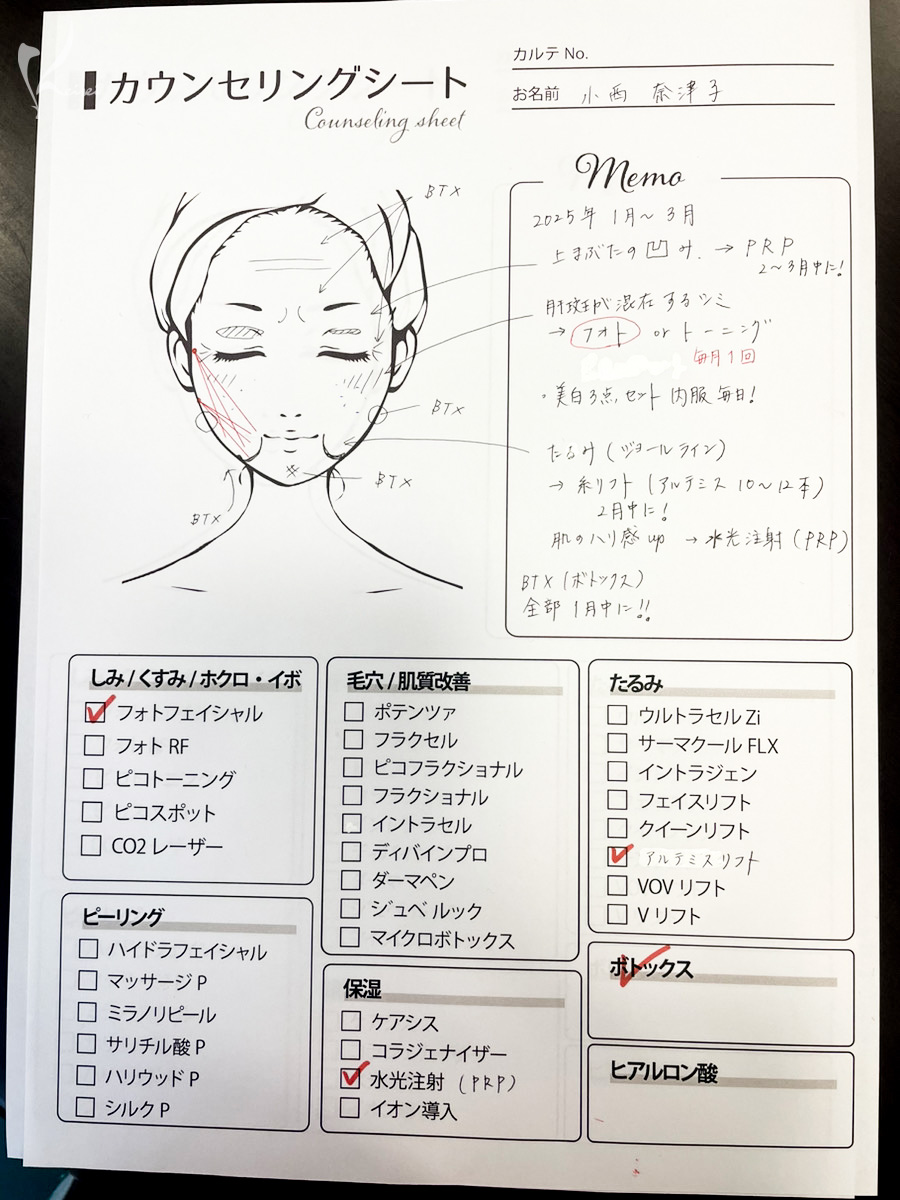 カウンセリングシート
Counseling sheet
カルテ No.
お名前 小西 奈津子
BTX
BTX
BTX
BTX
Memo
2025年 1月～3月
上まぶたの凹み. → PRP
2～3月中に!
肝斑が混在するシミ
→ フォト or トーニング
毎月1回
・美白3点セット 内服毎日!
たるみ (ジョールライン)
→ 糸リフト (アルテミス 10～12本)
2月中に!
肌のハリ感up → 水光注射 (PRP)
BTX (ボトックス)
全部 1月中に!!
しみ / くすみ / ホクロ・イボ
フォトフェイシャル
フォト RF
ピコトーニング
ピコスポット
CO2 レーザー
ピーリング
ハイドラフェイシャル
マッサージ P
ミラノリピール
サリチル酸 P
ハリウッド P
シルク P
毛穴 / 肌質改善
ポテンツァ
フラクセル
ピコフラクショナル
フラクショナル
イントラセル
ディバインプロ
ダーマペン
ジュベルック
マイクロボトックス
保湿
ケアシス
コラジェナイザー
水光注射 (PRP)
イオン導入
たるみ
ウルトラセル Zi
サーマクール FLX
イントラジェン
フェイスリフト
クイーンリフト
アルテミスリフト
VOV リフト
V リフト
ボトックス
ヒアルロン酸